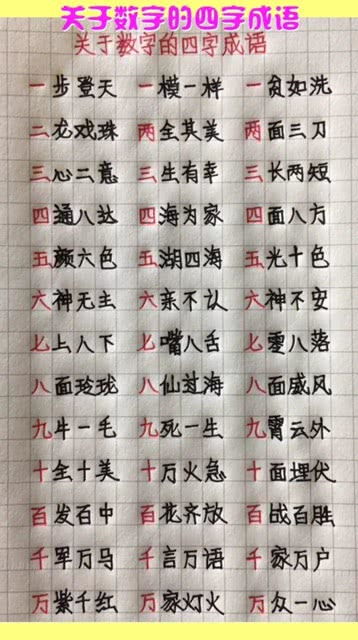 关于数字的四字成语
关于数字的四字成语
一步登天 一模一样 一贫如洗
二龙戏珠 两全其美 两面三刀
三心二意 三生有幸 三长两短
四通八达 四海为家 四面八方
五颜六色 五湖四海 五光十色
六神无主 六亲不认 六神不安
七上八下 七嘴八舌 七零八落
八面玲珑 八仙过海 八面威风
九牛一毛 九死一生 九霄云外
十全十美 十万火急 十面埋伏
百发百中 百花齐放 百战百胜
千军万马 千言万语 千家万户
万紫千红 万家灯火 万众一心